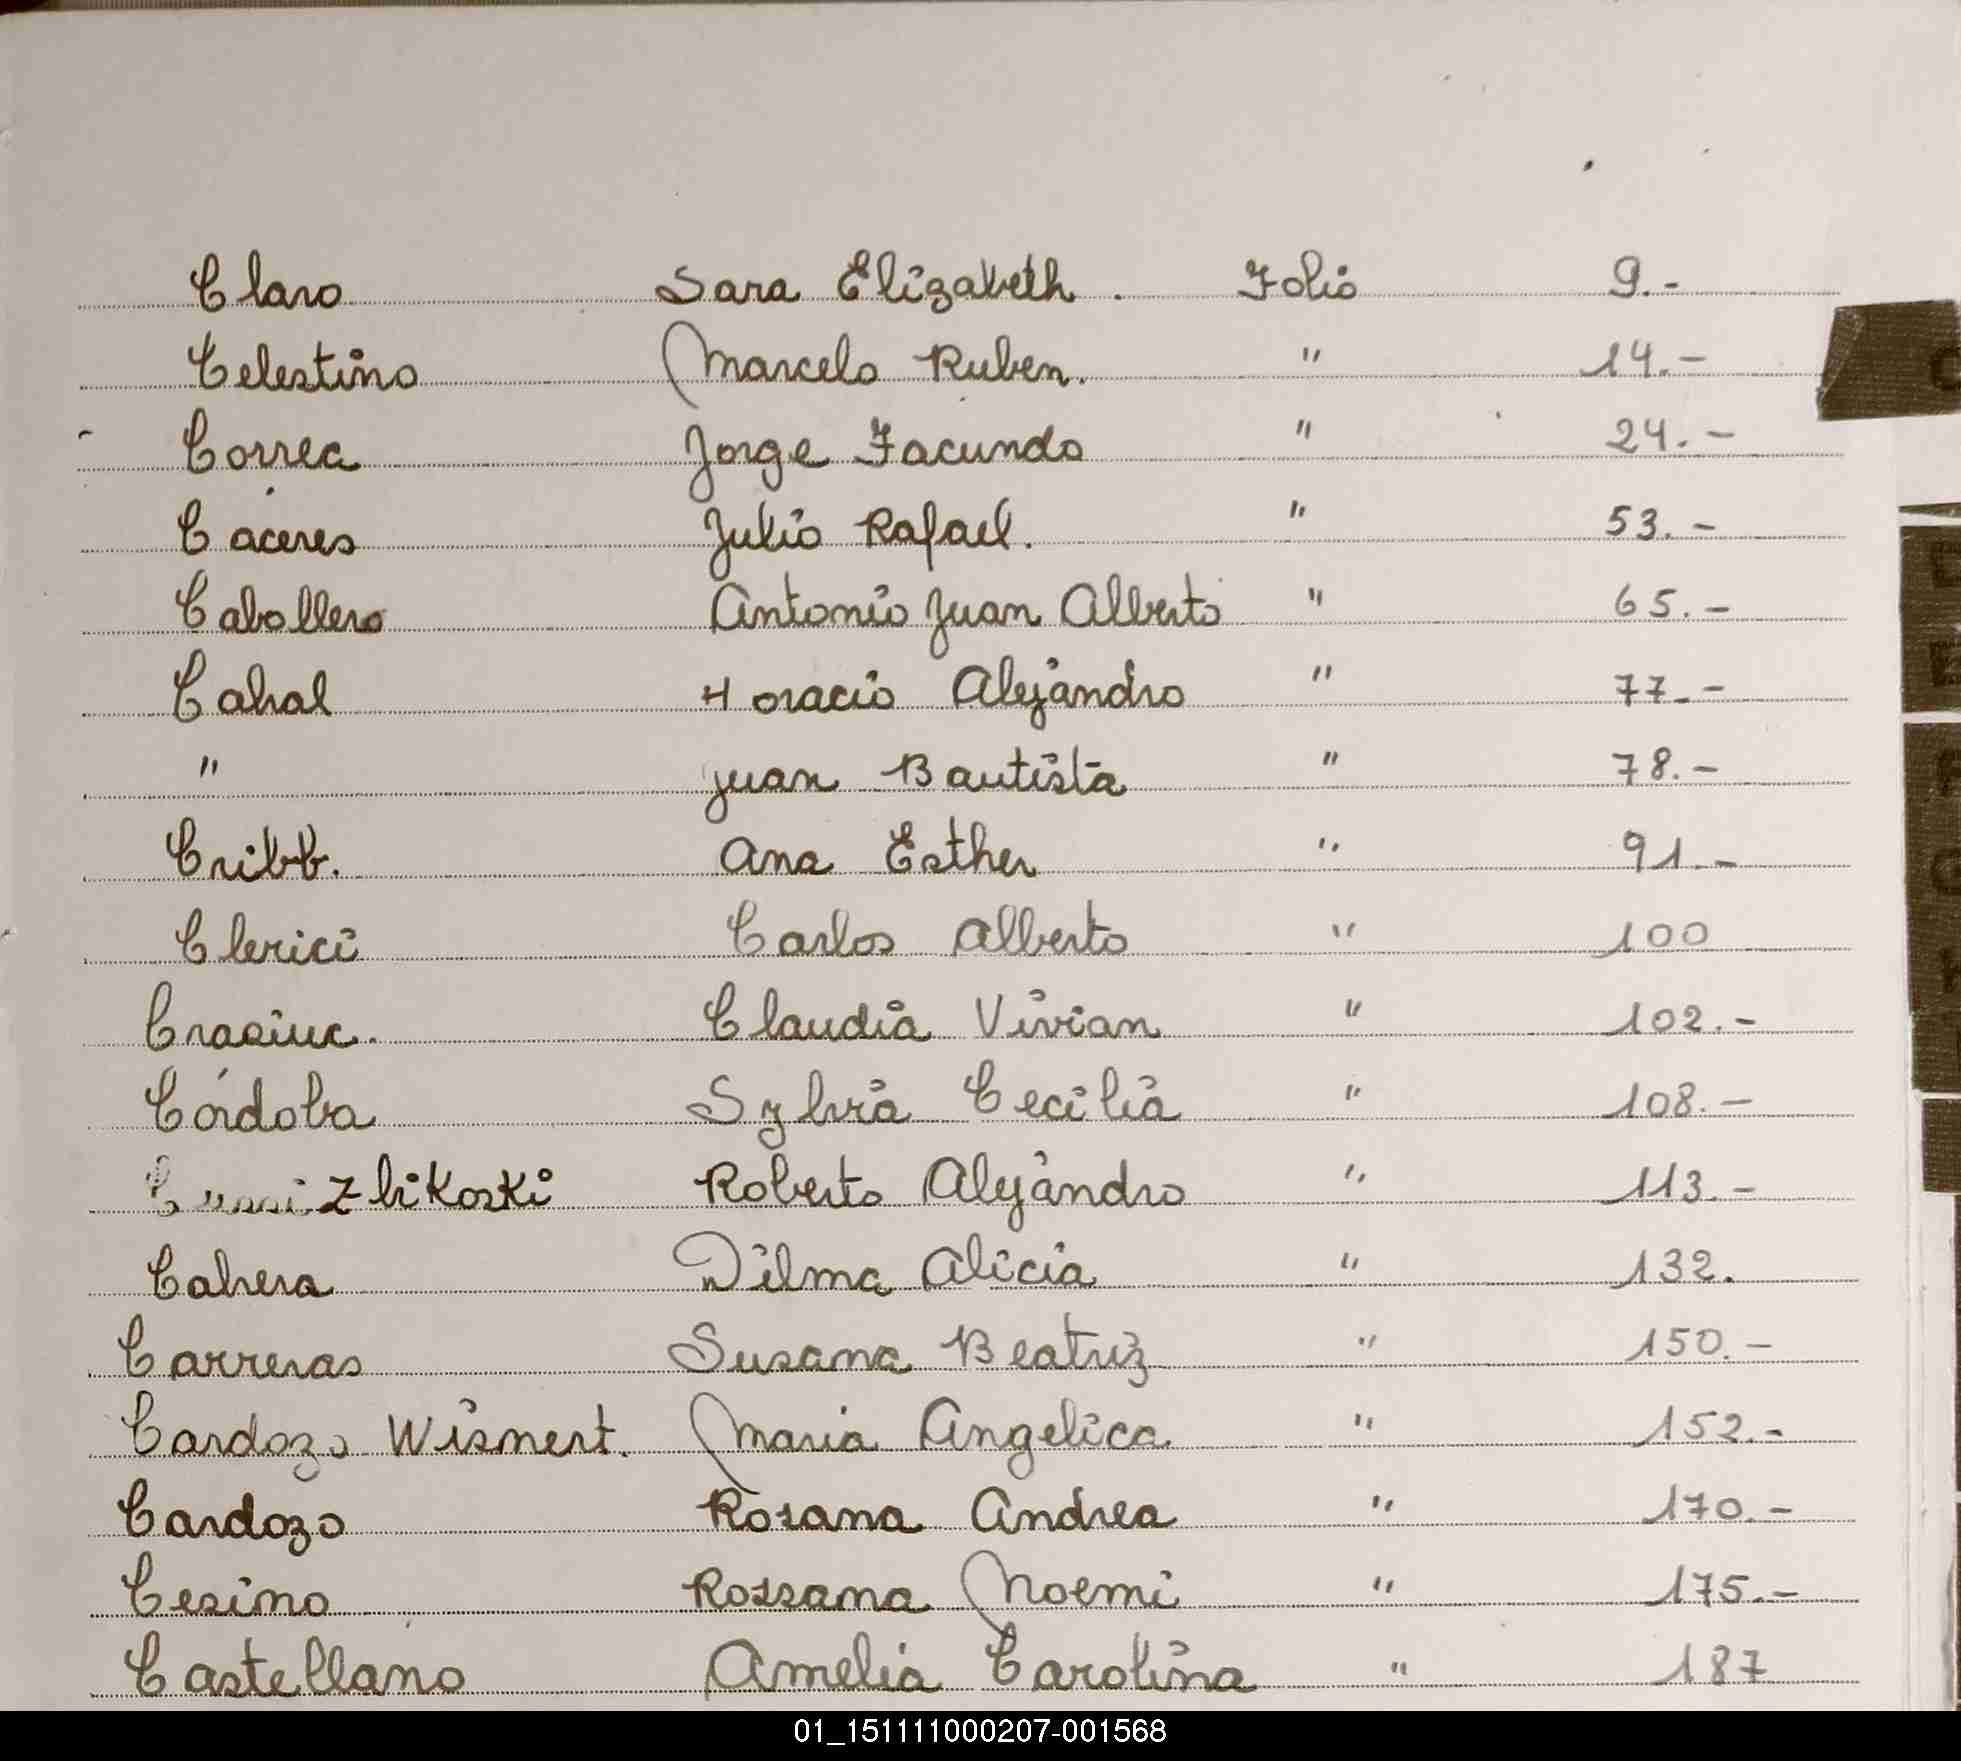 Claro Sara Elizabeth. Folio 9.-
Celestino Marcelo Ruben. " 14.-
Correa Jorge Facundo " 24.-
Cáceres Julio Rafael. " 53.-
Caballero Antonio Juan Alberto " 65.-
Cabal Horacio Alejandro " 77.-
" Juan Bautista " 78.-
Cribb. Ana Esther " 91.-
Clerici Carlos Alberto " 100
Claudia Vivian " 102.-
Córdoba Sylvia Cecilia " 108.-
Roberto Alejandro " 113.-
Cabrera Dilma Alicia " 132.
Carreras Susana Beatriz " 150.-
Cardozo Wismert. Maria Angelica " 152.-
Cardozo Rosana Andrea " 170.-
Cesino Rossana Noemi " 175.-
Castellano Amelia Carolina " 187
C
E
F
G
01_151111000207-001568